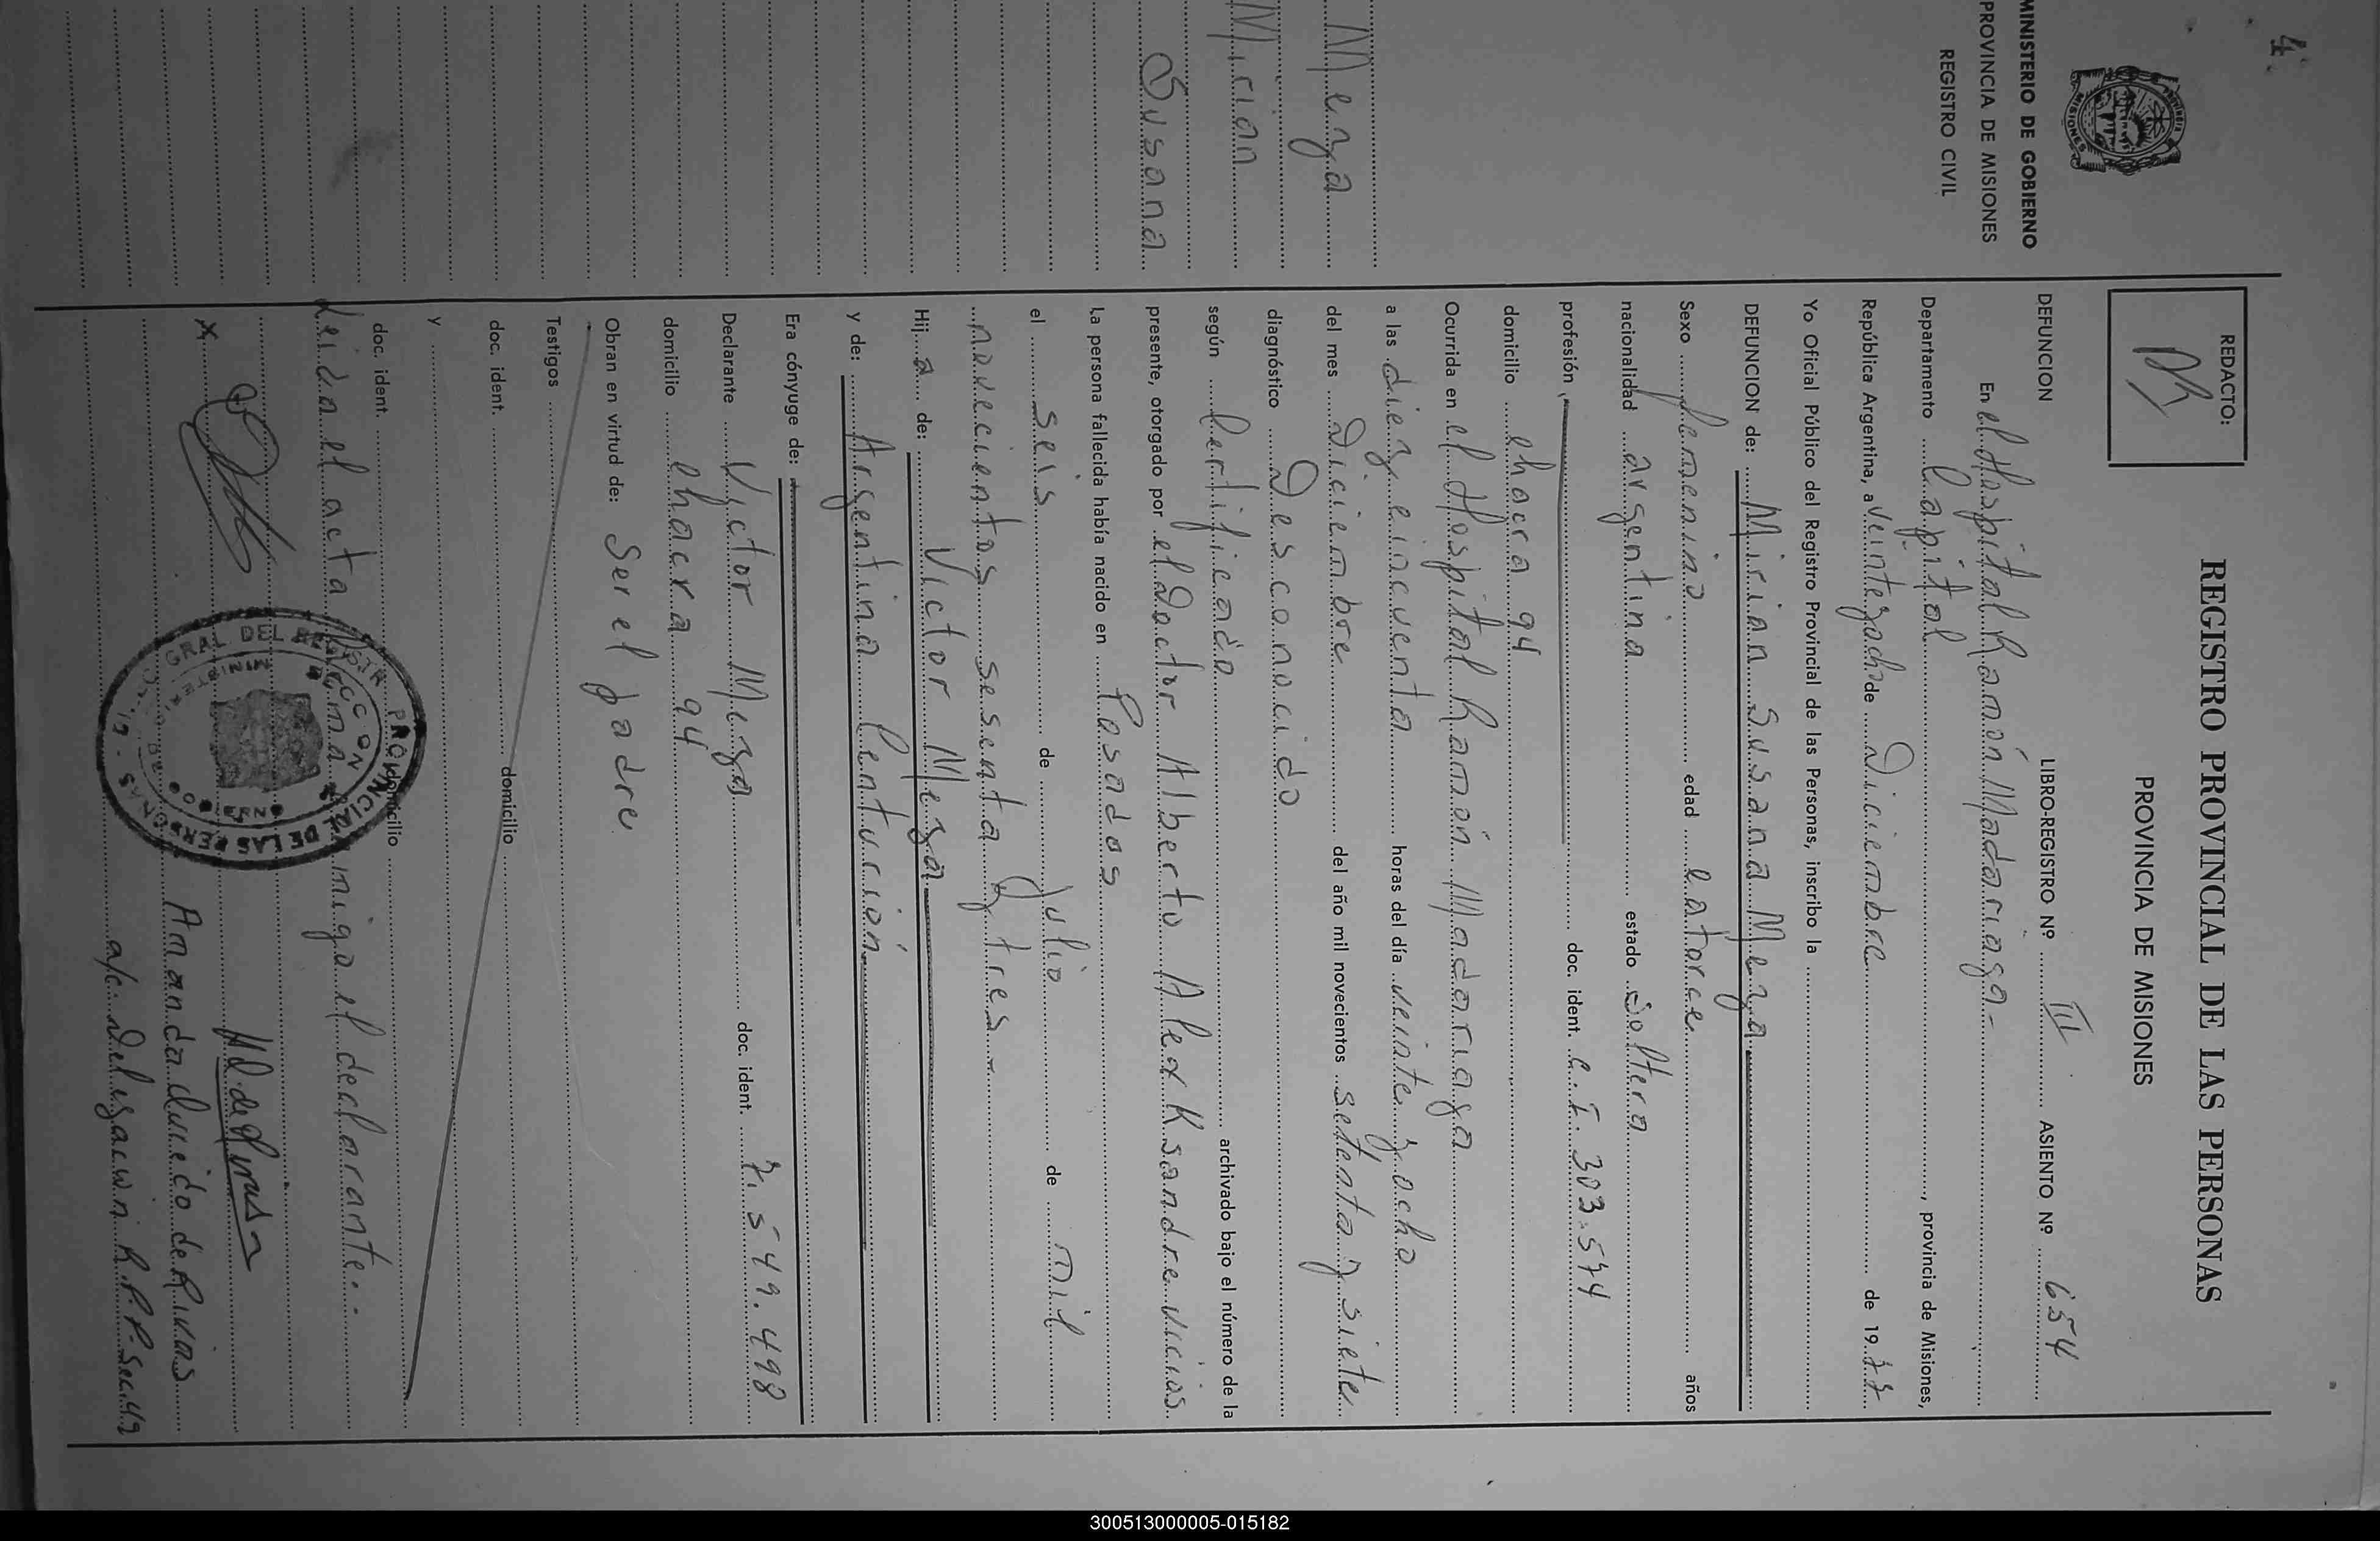 4
MINISTERIO DE GOBIERNO
PROVINCIA DE MISIONES
REGISTRO CIVIL
Meza
Mirian
Susana
REDACTO:
REGISTRO PROVINCIAL DE LAS PERSONAS
PROVINCIA DE MISIONES
DEFUNCION LIBRO-REGISTRO Nº III ASIENTO Nº 654
En el Hospital Ramón Madariaga-
Departamento Capital, provincia de Misiones,
República Argentina, a veinteyocho de Diciembre de 1977
Yo Oficial Público del Registro Provincial de las Personas, inscribo la
DEFUNCION de: Mirian Susana Meza
Sexo femenino edad catorce años
nacionalidad argentina estado soltera
profesión doc. ident. C.I. 303.574
domicilio chacra 94
Ocurrida en el Hospital Ramón Madariaga
a las diez cincuenta horas del día veinte y ocho
del mes Diciembre del año mil novecientos setenta y siete
diagnóstico Desconocido
según Certificado archivado bajo el número de la
presente, otorgado por el Doctor Alberto Alexksandrevicius
La persona fallecida había nacido en Posadas
el seis de Julio de mil
novecientos sesenta y tres-
Hija de: Victor Meza
y de: Argentina Centurión
Era cónyuge de:
Declarante Victor Meza doc. ident. 7.549.498
domicilio chacra 94
Obran en virtud de: Ser el padre
Testigos
doc. ident. domicilio
y
doc. ident. domicilio
Leida el acta conmigo el declarante..
x
Amanda de Rivas
a/c. Delegación R.P.P. Sec.49
PROVINCIAL DE LAS PERSONAS
300513000005-015182